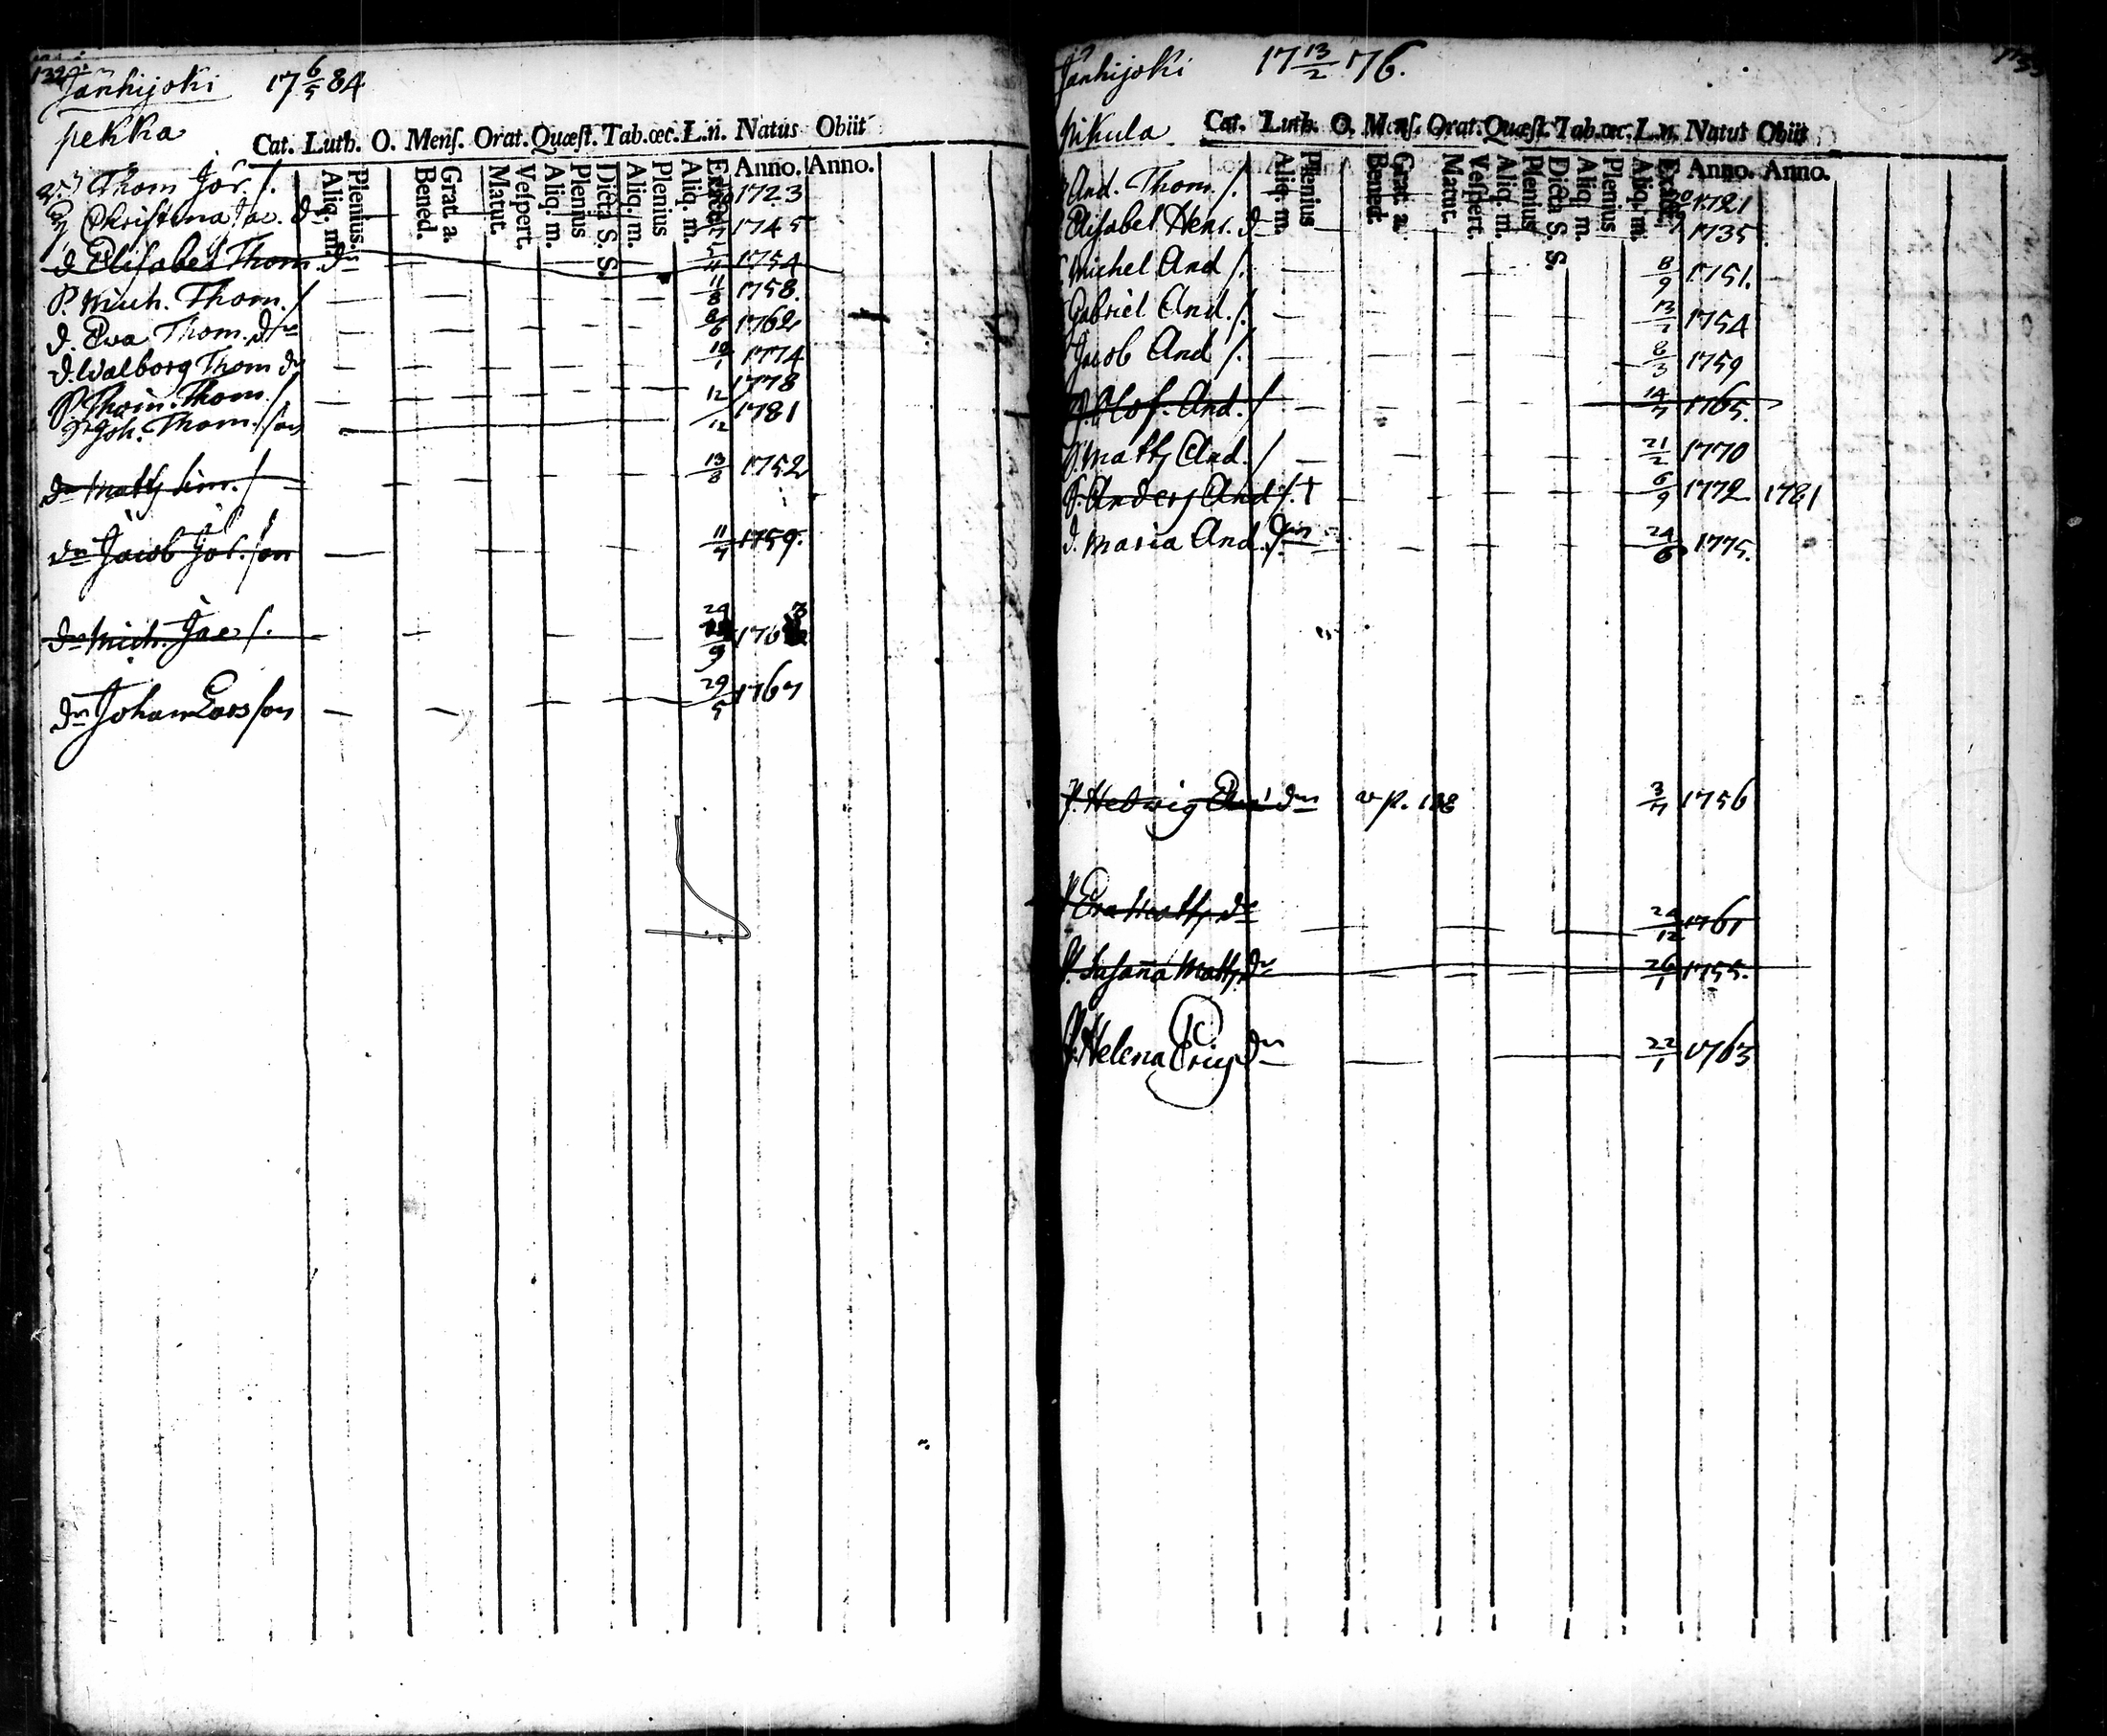 132
Janhijoki 17 6/5 84
pekka
Cat. Luth. O. Menſ. Orat. Quæſt. Tab. œc. L. n. Natus Obiit
Plenius. Aliq. m. Grat. a. Bened. Matut. Veſpert. Aliq. m. Plenius Dicta S. S. Aliq. m. Plenius Aliq. m. Anno. Anno.
Thom Jör. /. 1723
Christina Jac. d 1745
d Elisabet Thom. dr 1754
P. Mich. Thom. / 11/8 1758.
d. Eva Thom. dr 8/6 1762
d. Walborg Thom dr 1774
P. Thom. Thom. / 12 1778
Joh. Thom. son /12 1781
dn Matts Sim. / 13/8 1752
dn Jacob Jör. son 11/7 1759.
dn Mich. Jac /. 24/9 1763
dn Johan Lars son 29/5 1767
Janhijoki 17 13/2 76.
Nikula
Cat. Luth. O. Menſ. Orat. Quæſt. Tab. œc. L. n. Natus Obiit
Aliq. m. Plenius Bened. Grat. a. Matut. Veſpert. Aliq. m. Plenius Dicta S. S. Aliq. m. Plenius Aliq. m. Anno. Anno.
And. Thom. /. 1721
Elisabet Henr. d 1735
Michel And /. 8/9 1751.
Gabriel And. /. 1754
Jacob And /. 8/3 1759
Olof. And. / 14/7 1765.
Matts And. / 21/2 1770
P. Anders And /. † 6/9 1772 1781
d. Maria And. dr 24/6 1775.
P. Hedwig dr v p. 108 3/7 1756
Eva Matts dr 24/12 1761
P. Susana Matts dr 26/1 1755.
P. Helena Erics dr 22/1 1763